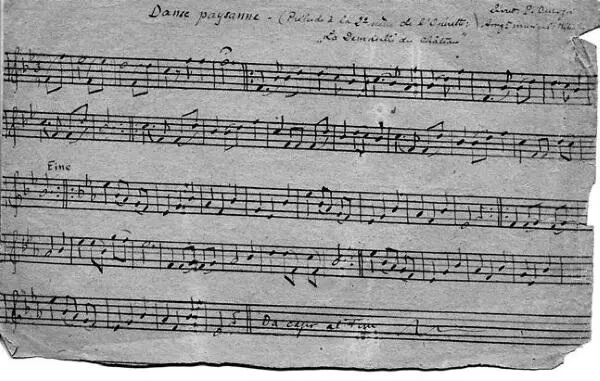 Danse paysanne - (Prélude à la 2e de l'Opérette
"La Demoiselle du Château
Fine
Da capo al Fine